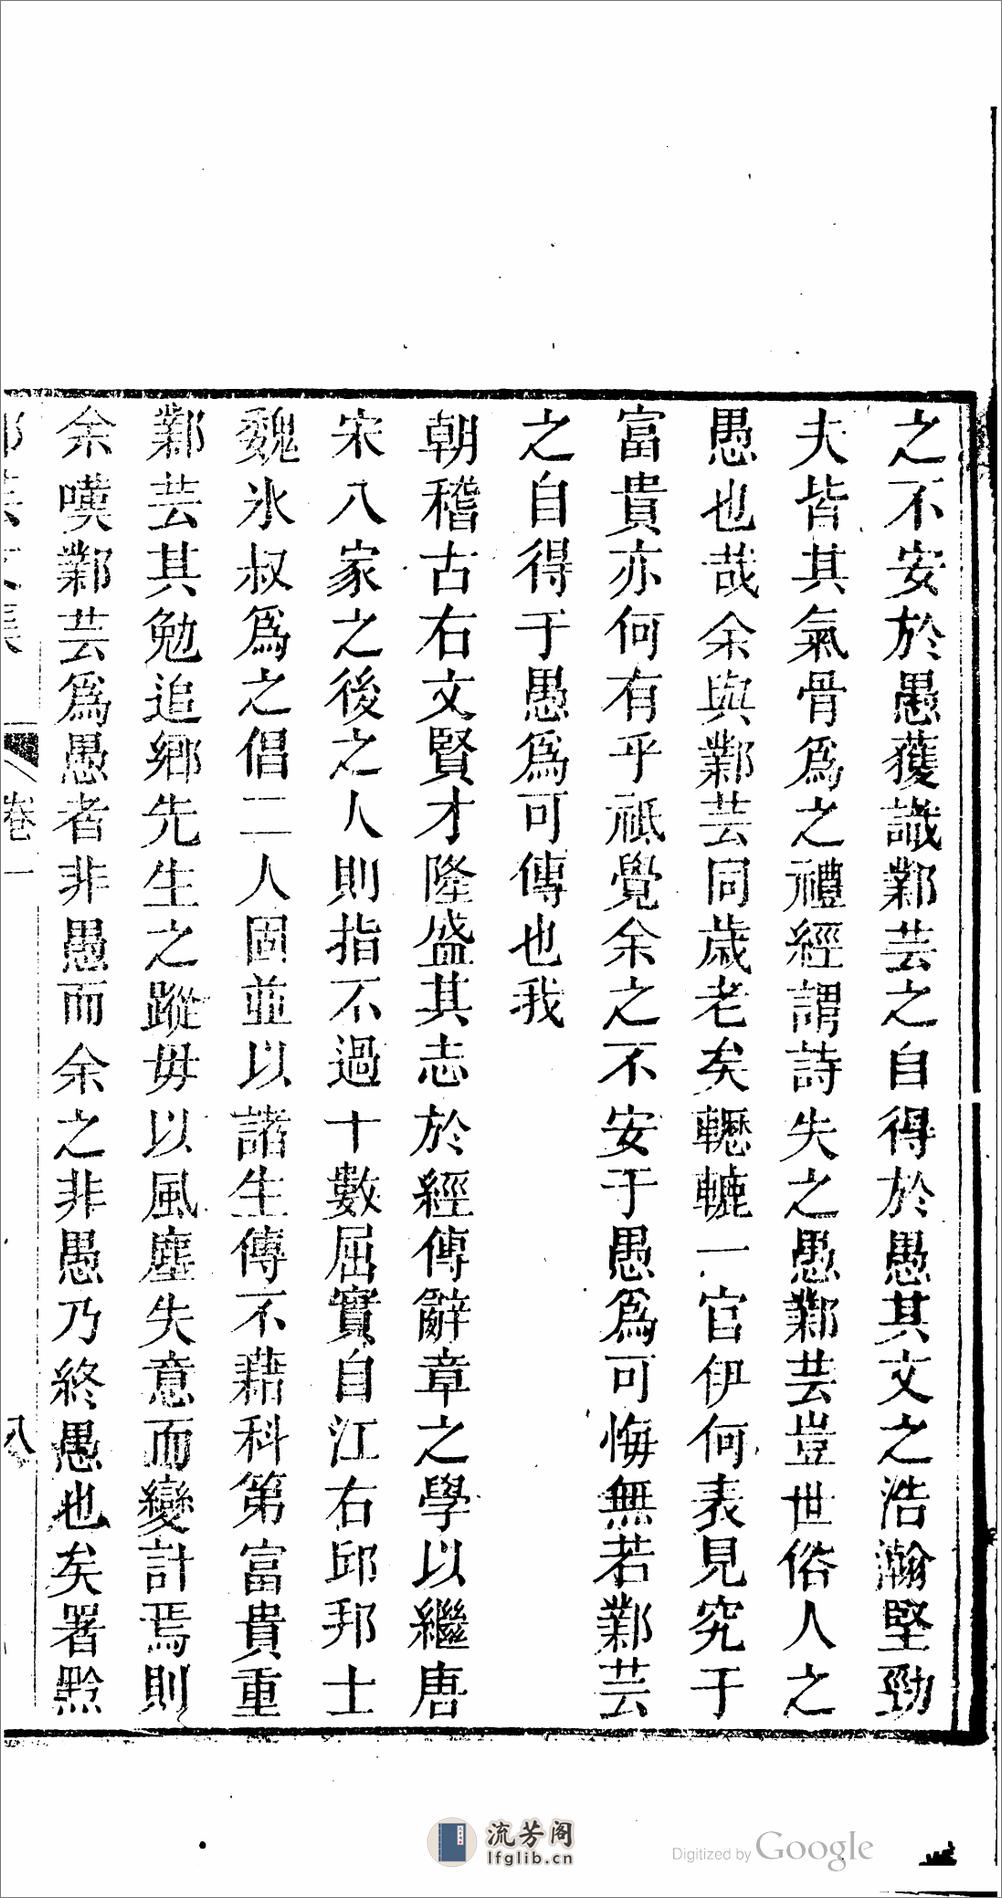 之不安於愚獲識鄴芸之自得於愚其文之浩瀚堅勁
夫皆其氣骨爲之禮經謂詩失之愚鄴芸豈世俗人之
愚也哉余與鄴芸同歲老矣轣轆一官伊何表見究于
富貴亦何有乎祇覺余之不安于愚爲可悔無若鄴芸
之自得于愚爲可傳也我
朝稽古右文賢才隆盛其志於經傳辭章之學以繼唐
宋八家之後之人則指不過十數屈實自江右邱邦士
魏氷叔爲之倡二人固並以諸生傳不藉科第富貴重
鄴芸其勉追鄉先生之蹤毋以風塵失意而變計焉則
余嘆鄴芸爲愚者非愚而余之非愚乃終愚也矣署黔
卷一
八
流芳阁
lfglib.cn
Digitized by Google